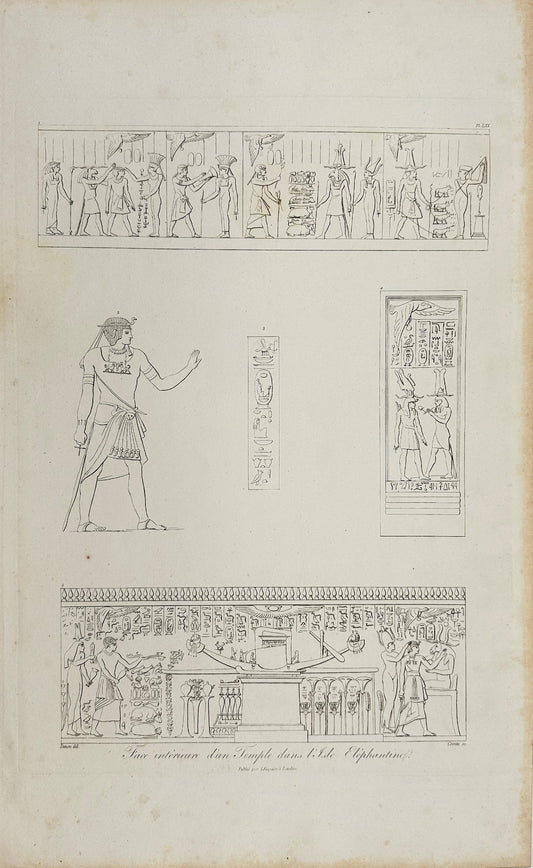 1
Pl. LXV
2
3
4
5
Denon del.
Face intérieure d'un Temple dans l'Isle Eléphantine.
Publié par à Londres